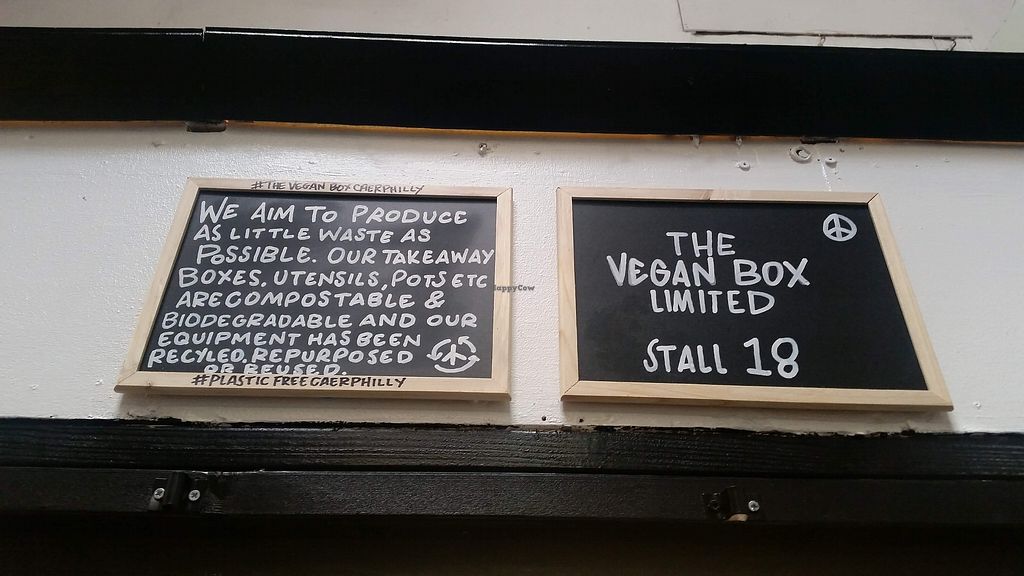 #THE VEGAN BOX CAERPHILLY
WE AIM TO PRODUCE
AS LITTLE WASTE AS
POSSIBLE. OUR TAKEAWAY
BOXES, UTENSILS, POTS ETC
ARE COMPOSTABLE &
BIODEGRADABLE AND OUR
EQUIPMENT HAS BEEN
RECYLED, REPURPOSED
OR REUSED.
#PLASTIC FREE CAERPHILLY
HappyCow
THE
VEGAN BOX
LIMITED
STALL 18